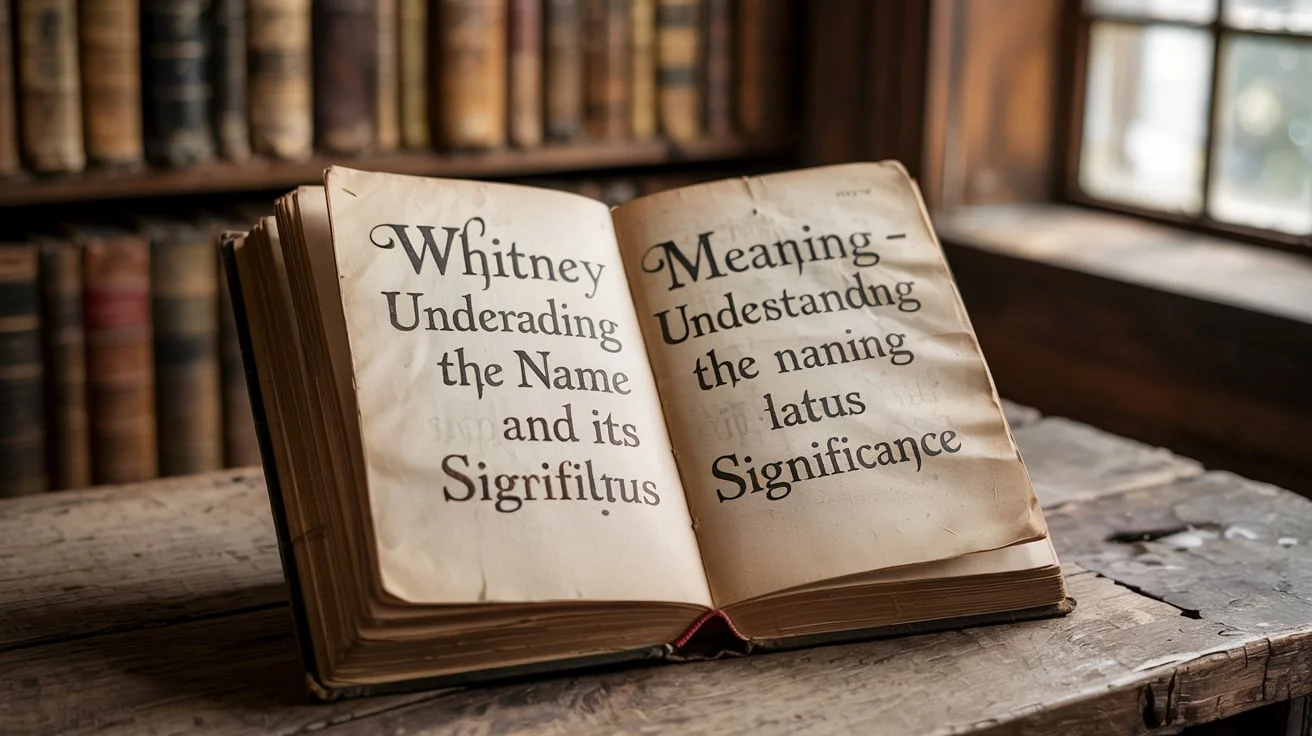 Whitney
Underading
the Name
and its
Sigrifiltus
Meaning –
Undestandng
the naning
latus
Significance